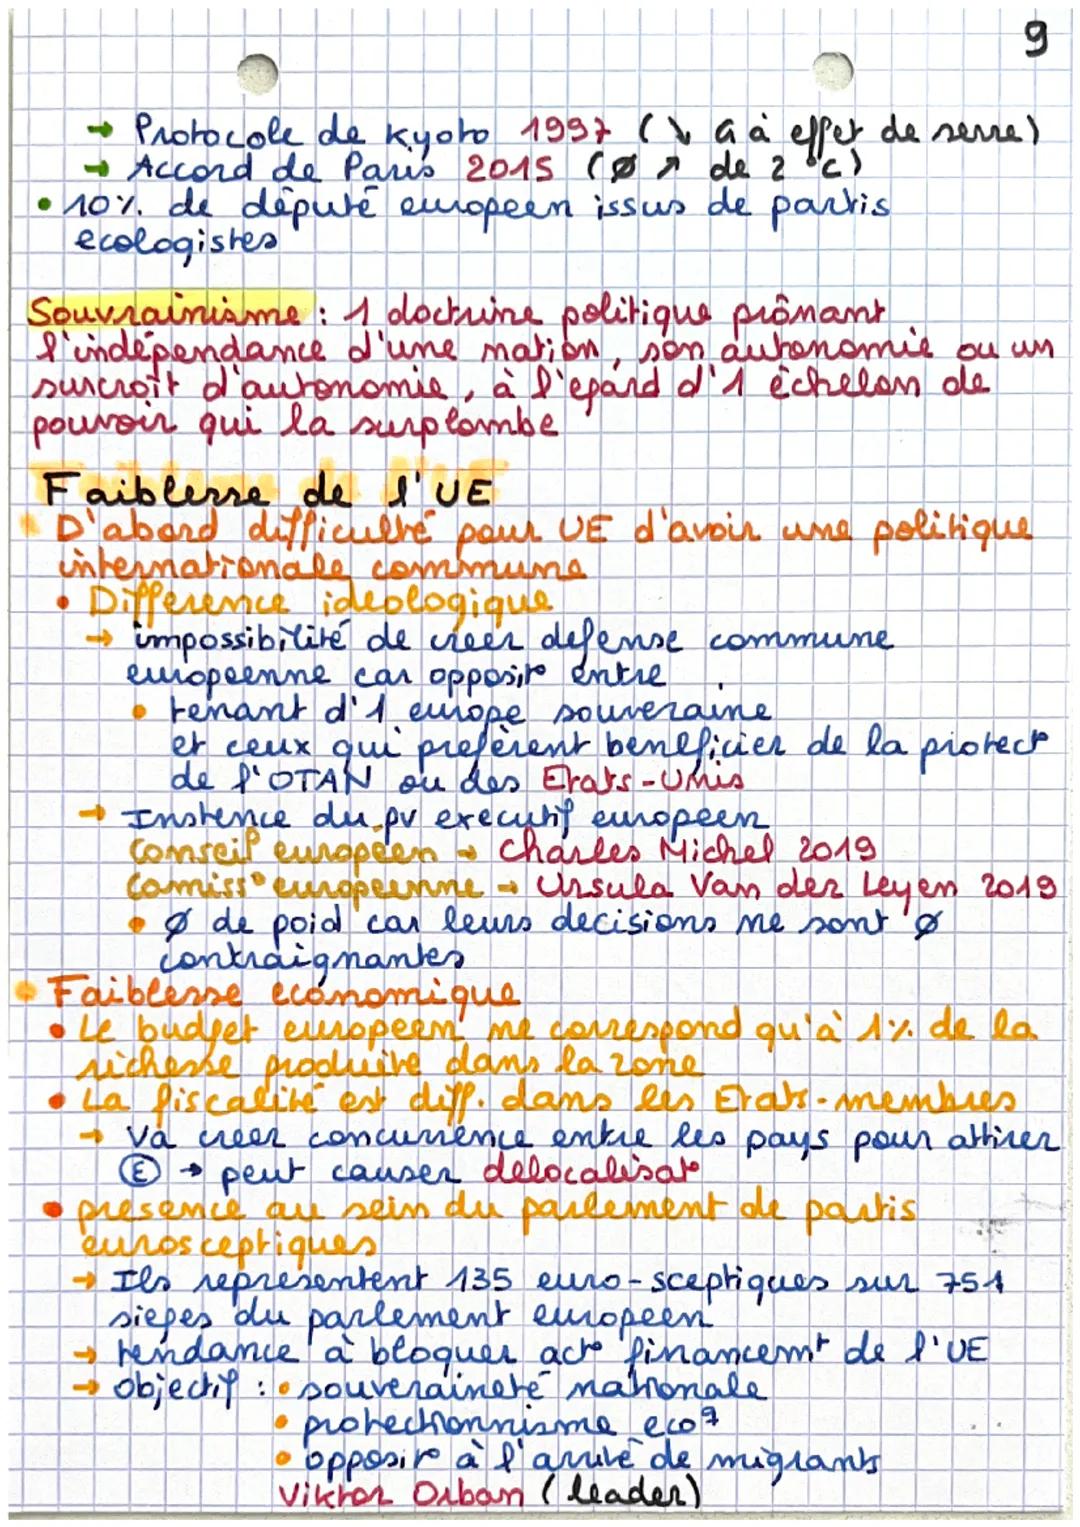 9
→ Protocole de Kyoto 1997 (↘ G à effet de serre)
→ Accord de Paris 2015 (Ø ↗ de 2 °C)
• 10% de député europeen issus de partis
ecologistes
Souvrainisme : 1 doctrine politique prônant
l'indépendance d'une nation, son autonomie ou un
surcroît d'autonomie, à l'egard d'1 échelon de
pouvoir qui la surplombe
Faiblesse de l'UE
• D'abord difficulté pour UE d'avoir une politique
internationale commune
• Difference ideologique
→ impossibilité de creer defense commune
europeenne car opposit° entre
• tenant d'1 europe souveraine
et ceux qui prefèrent beneficier de la protect°
de l'OTAN ou des Etats-Unis
→ Instence du pv executif europeen
Conseil européen → Charles Michel 2019
Comiss° européenne → Ursula Van der Leyen 2019
• Ø de poid car leurs decisions ne sont Ø
contraignantes
• Faiblesse economique
• Le budget europeen ne correspond qu'à 1% de la
richesse produite dans la zone
• La fiscalité est diff. dans les Etats-membres
→ Va creer concurrence entre les pays pour attirer
Ⓔ → peut causer delocalisat°
• presence au sein du parlement de partis
eurosceptiques
→ Ils representent 135 euro-sceptiques sur 751
sieges du parlement europeen
→ tendance à bloquer act° financemt de l'UE
→ objectif : • souveraineté nationale
• protectionnisme eco⁹
• opposit° à l'arrivé de migrants
Viktor Orban (leader)